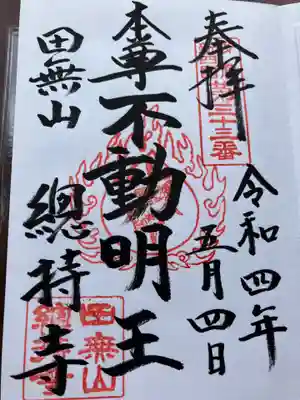 奉拝
三十三番
令和四年
五月四日
本尊
不動明王
田無山
總持寺
田無山
總持寺